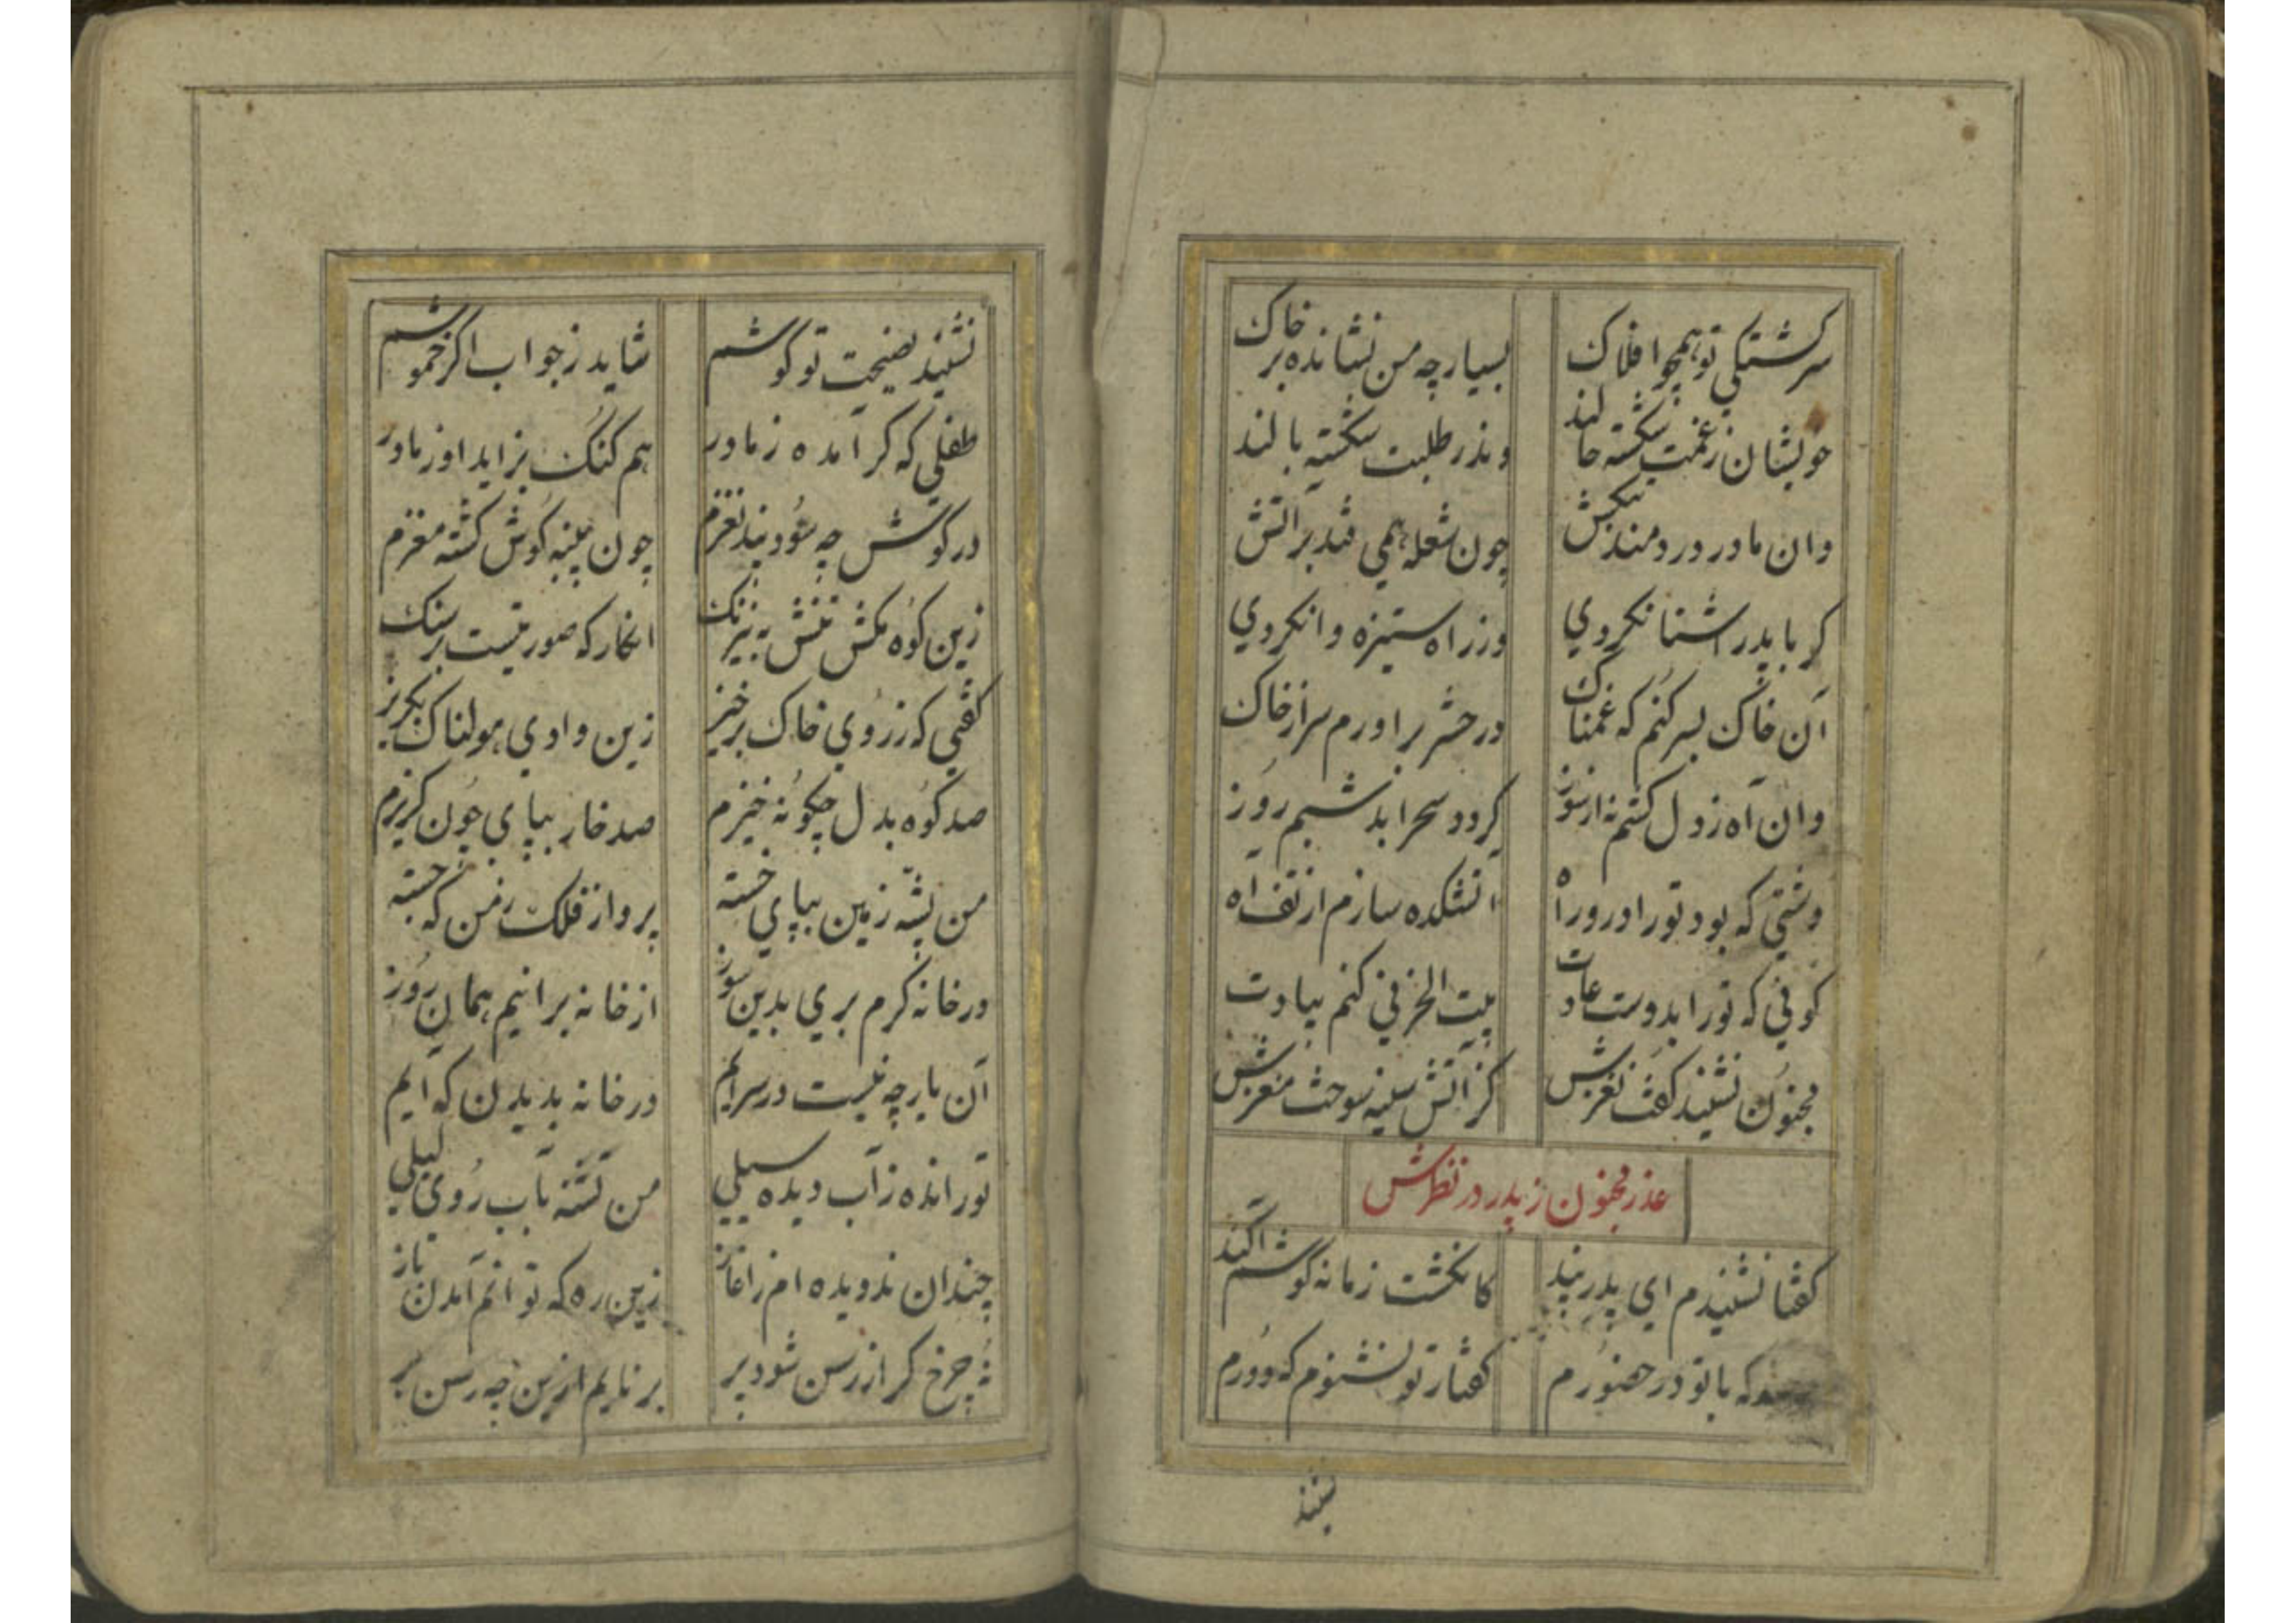 سرکشتکی تو همچو افلاک بسیار چه من نشانده بر خاک
خویشان ز غمت شکسته حالند وندر طلبت شکسته بالند
وان مادر دردمند چون شعله همی فتد بر اتش
کر با پدر اشنا نکردی وز راه ستیزه وا نکردی
آن خاک بسر کنم که غمناک در حشر براورم سر از خاک
وان آه ز دل کشم نه از سوز کردد سحر ابد شبم روز
دشتی که بود تو را درو راه اتشکده سازم از تف آه
کوفی که تو را بدوست عادت بیت الحزنی کنم بیادت
مجنون نشنید کفت نغزش کز آتش سینه سوخت مغزش
عذر مجنون ز پدر در نظرش
کفتا نشنیدم ای پدر پند کانکشت زمانه کوشم آکند
که با تو در حضورم کفتار تو نشنوم که دورم
نشنید
نشنید نصیحت تو کوشم شاید ز جواب اکر خموشم
طفلی که کر آمده ز مادر هم کنک بزاید او ز مادر
در کوش چه سود پند نغزم چون پنبه کوش کشته مغزم
زین کوه مکش تنش به نیرنک انکار که صورتیست بر سنک
کفتی که ز روی خاک برخیز زین وادی هولناک بکریز
صد کوه بدل چکونه خیزم صد خار بپای چون کریزم
من پشته زمین بپای خسته پرواز فلک ز من که جسته
در خانه کرم بری بدین سوز از خانه برانیم همان روز
آن یار چه نیست در سرایم در خانه بدیدن که آیم
تو رانده ز آب دیده سیلی من تشنه بآب روی لیلی
چندان ندویده ام ز اغاز زین ره که توانم آمدن باز
نه چرخ کر از رسن شود پر بر نایم ازین چه رسن بر